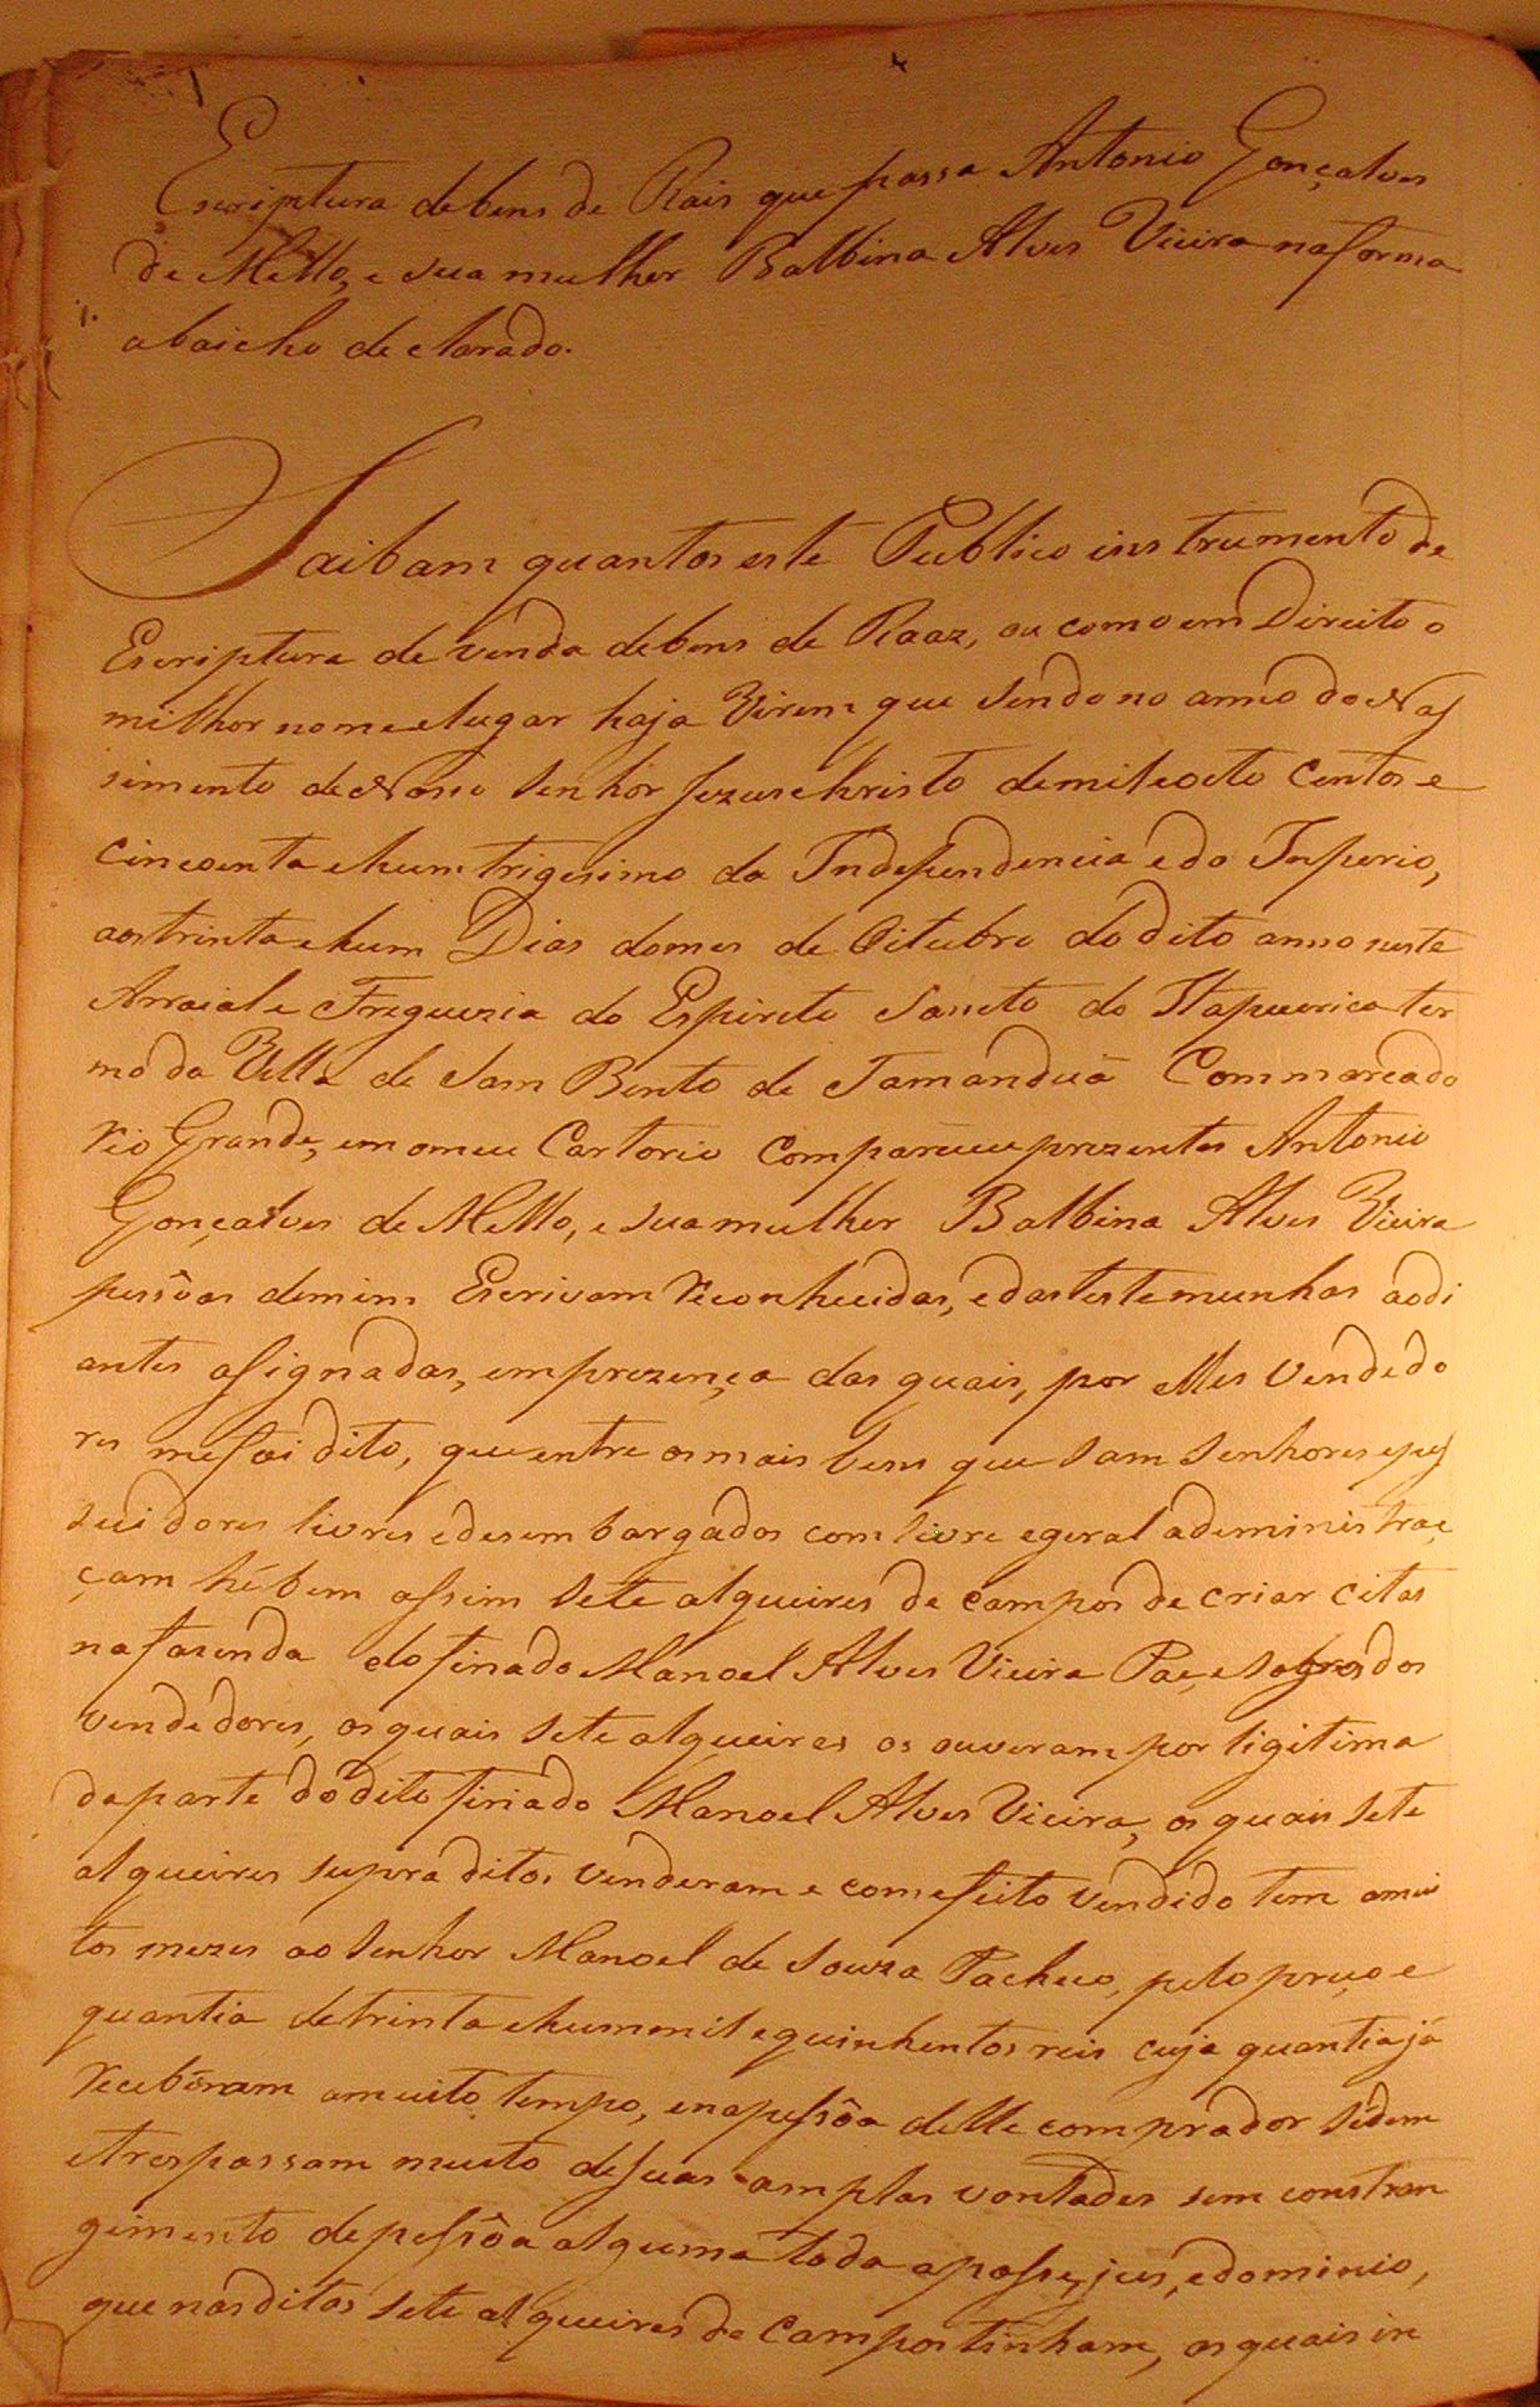 Escriptura de bens de Rais que passa Antonio Gonçalves
de Mello, e sua mulher Balbina Alves Vieira na forma
abaicho declarado.
Saibam quantos este Publico instrumento de
Escriptura de venda de bens de Raaz, ou como em Direito o
milhor nome e lugar haja Virem que sendo no anno do Nas
simento de Nosso Senhor Jezus Christo de mil e oito centos e
cincoenta e hum trigesimo da Independencia e do Inperio,
aos trinta e hum Dias do mes de Oitubro do dito anno neste
Arraial e Freguezia do Espirito Sancto do Itapuerica ter
mo da Villa de Sam Bento de Tamanduá Commarca do
Rio Grande, em o meu Cartorio Compareceu prezentes Antonio
Gonçalves de Mello, e sua mulher Balbina Alves Vieira
pessôas de mim Escrivam Reconhecidas, e das testemunhas aodi
antes assignadas, em prezença das quais, por elles Vendedo
res me foi dito, que entre os mais bens que sam Senhores e pos
suidores livres e desembargados com livre e geral adeministraç
çam hé bem assim sete alqueires de campos de criar citas
na fazenda do finado Manoel Alves Vieira Pae, e Sogro dos
vendedores, os quais sete alqueires os ouveram por ligitima
da parte do dito finado Manoel Alves Vieira, os quais sete
alqueires supra ditos venderam e com efeito vendido tem a mui
tos mezes ao Senhor Manoel de Souza Pacheco, pelo preço e
quantia de trinta e hum mil e quinhentos reis cuja quantia já
Receberam a muito tempo, e na pessôa delle comprador sedem
e trespassam muito de suas amplas vontades sem constran
gimento de pessôa alguma toda a posse, jus, e dominio,
que nos ditos sete alqueires de Campos tinham, os quais in